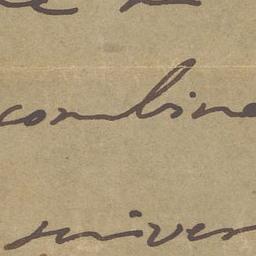 combine
univer